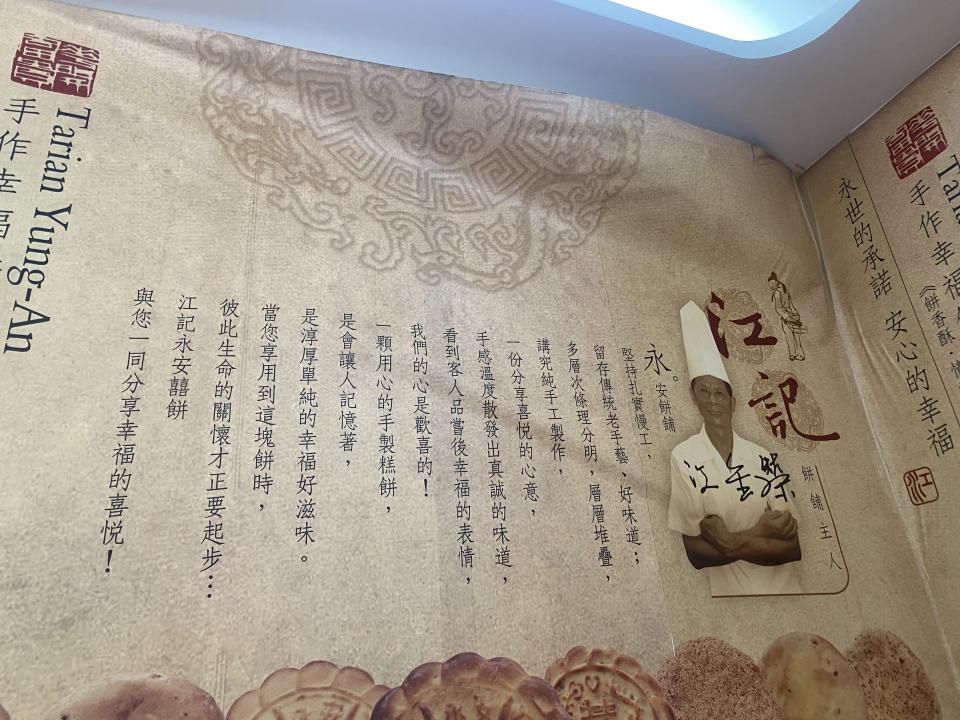 永世的承諾 安心的幸福
江
江記
餅舖主人
江金榮
永。安餅舖
堅持扎實慢工，
留存傳統老手藝、好味道；
多層次條理分明，層層堆疊，
講究純手工製作，
一份分享喜悅的心意，
手感溫度散發出真誠的味道，
看到客人品嘗後幸福的表情，
我們的心是歡喜的！
一顆用心的手製糕餅，
是會讓人記憶著，
是淳厚單純的幸福好滋味。
當您享用到這塊餅時，
彼此生命的關懷才正要起步…
江記永安囍餅
與您一同分享幸福的喜悅！
Tarian Yung-An
手作幸福
手作幸福
《餅香酥．情